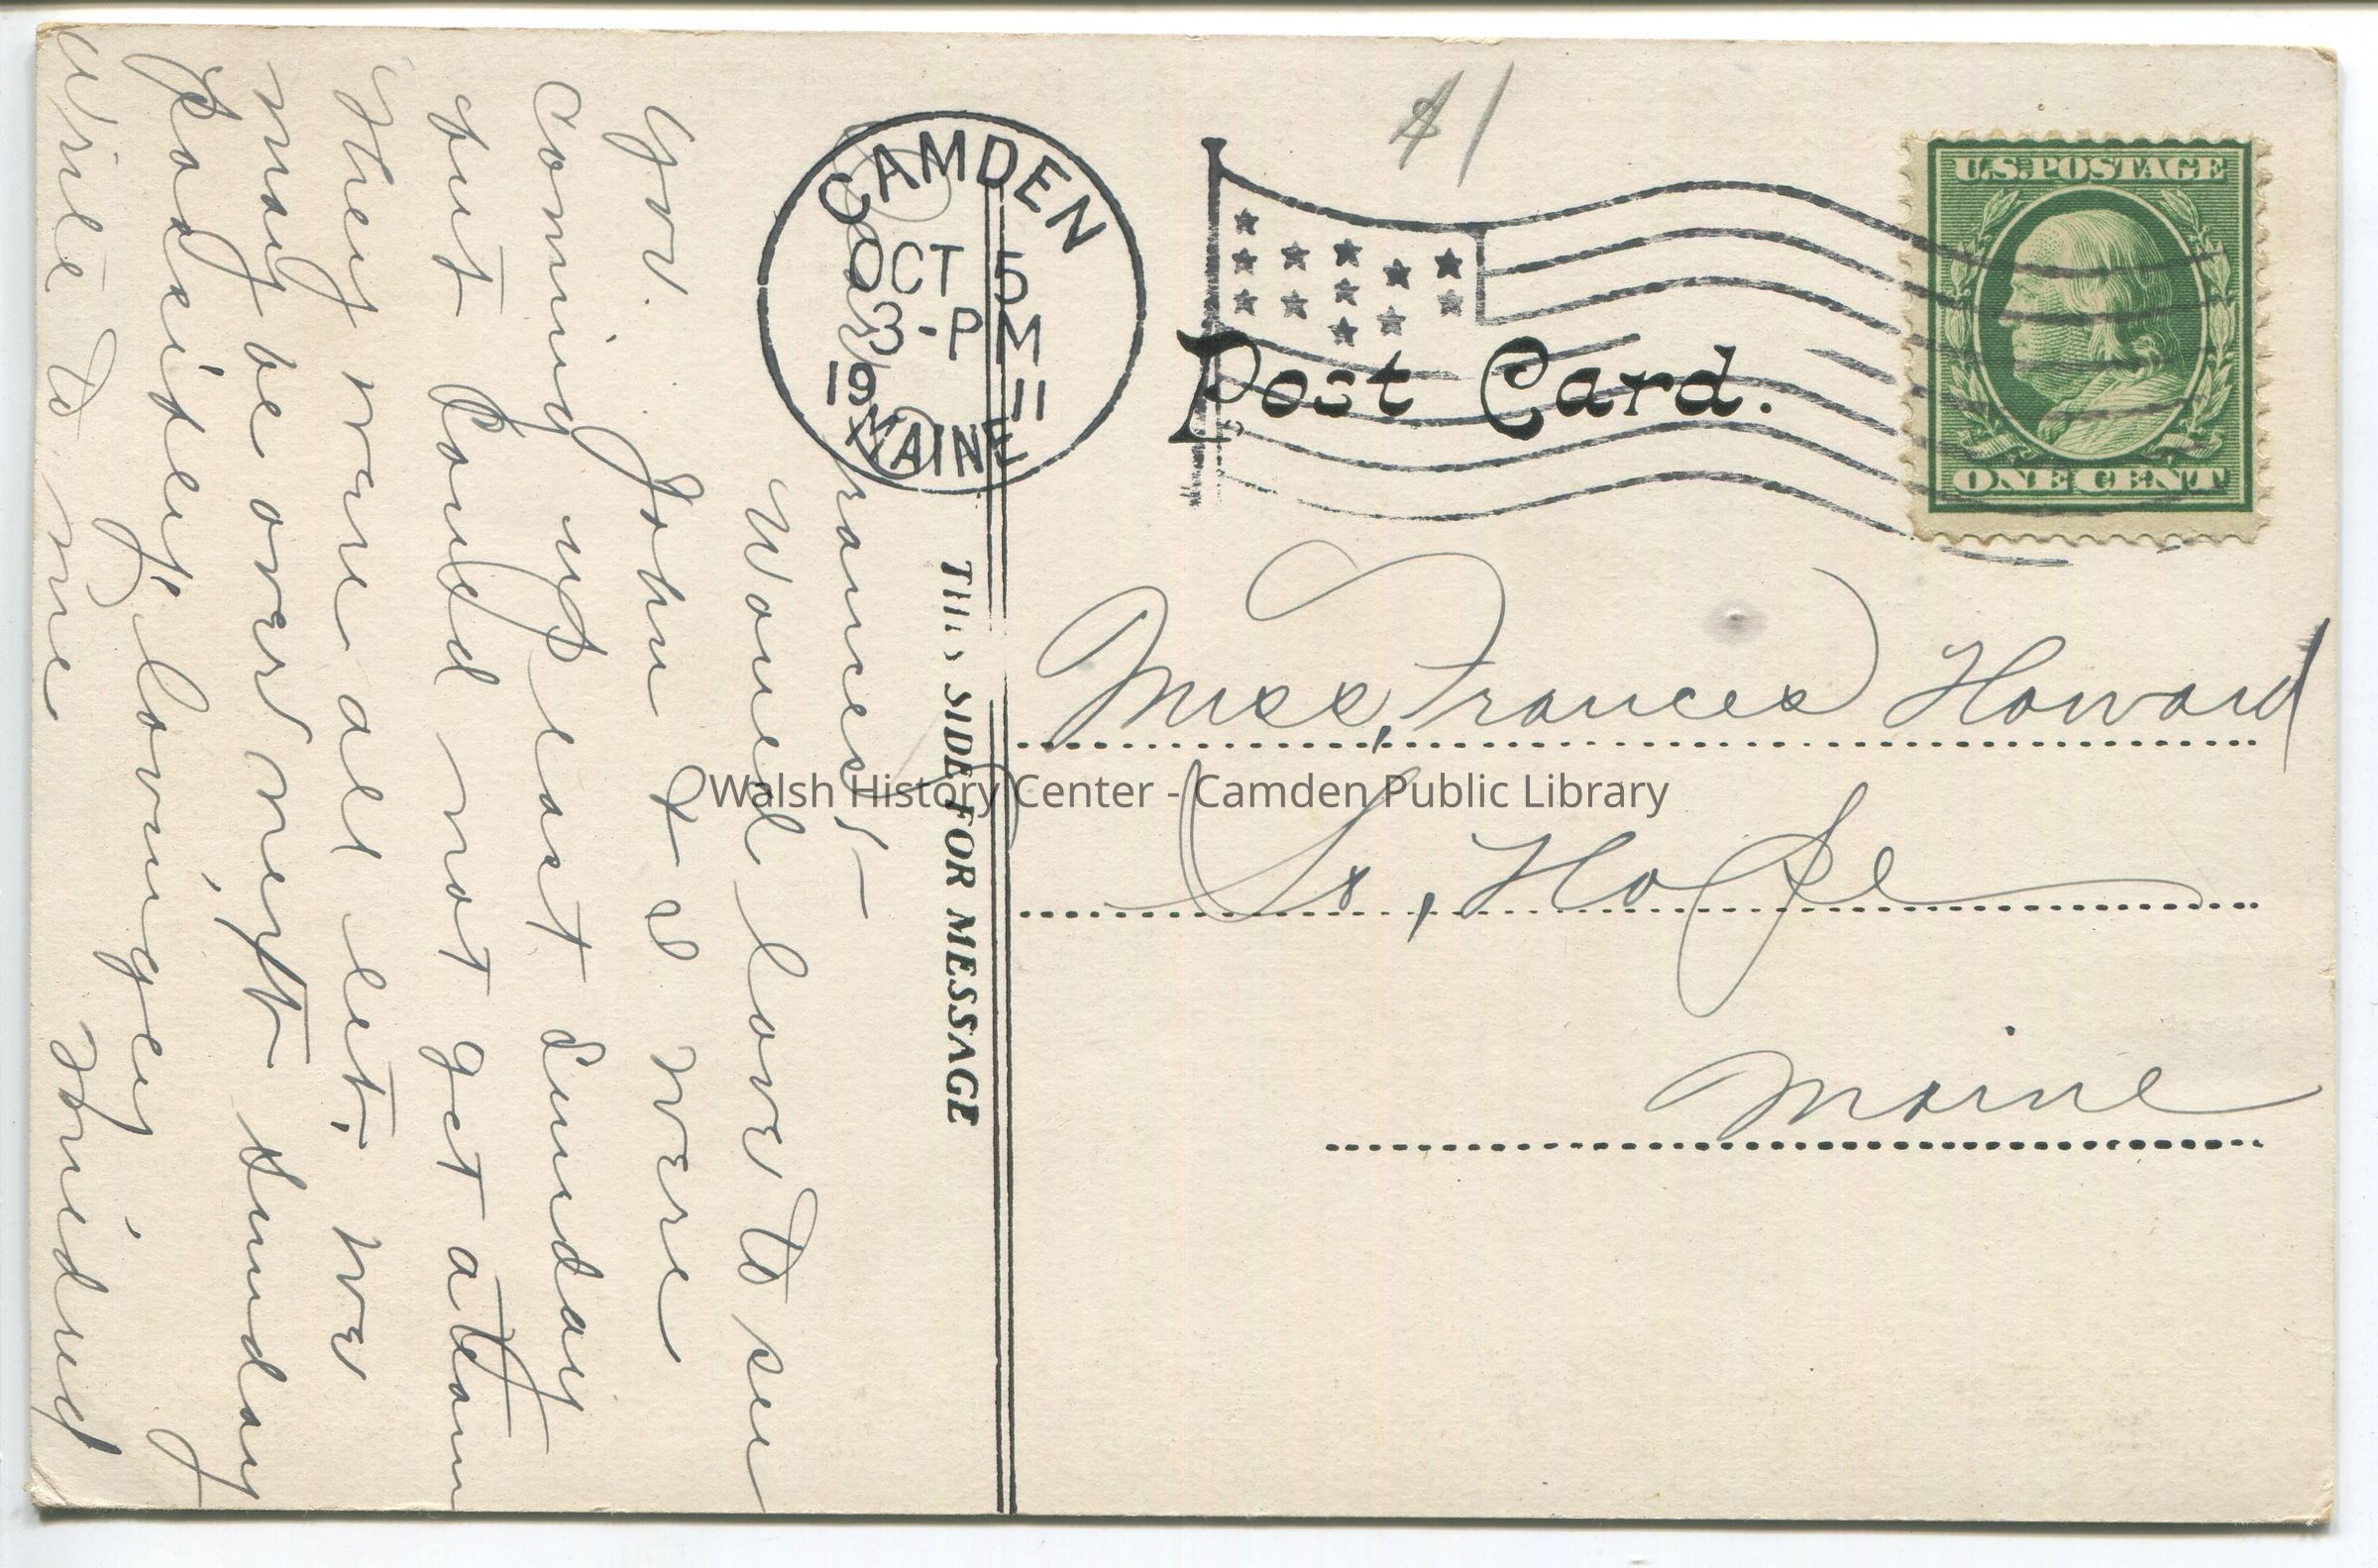 Dear Frances:—
Would love to see
you. John & I were
coming up last Sunday
but could not get a team
they were all let; we
may be over next Sunday
possibly, lovingly
Write to me Mildred
THIS SIDE FOR MESSAGE
CAMDEN
OCT 5
3-PM
1911
MAINE
$1
Post Card.
U.S. POSTAGE
ONE CENT
Miss, Frances Howard
So, Hope
Maine
Walsh History Center - Camden Public Library